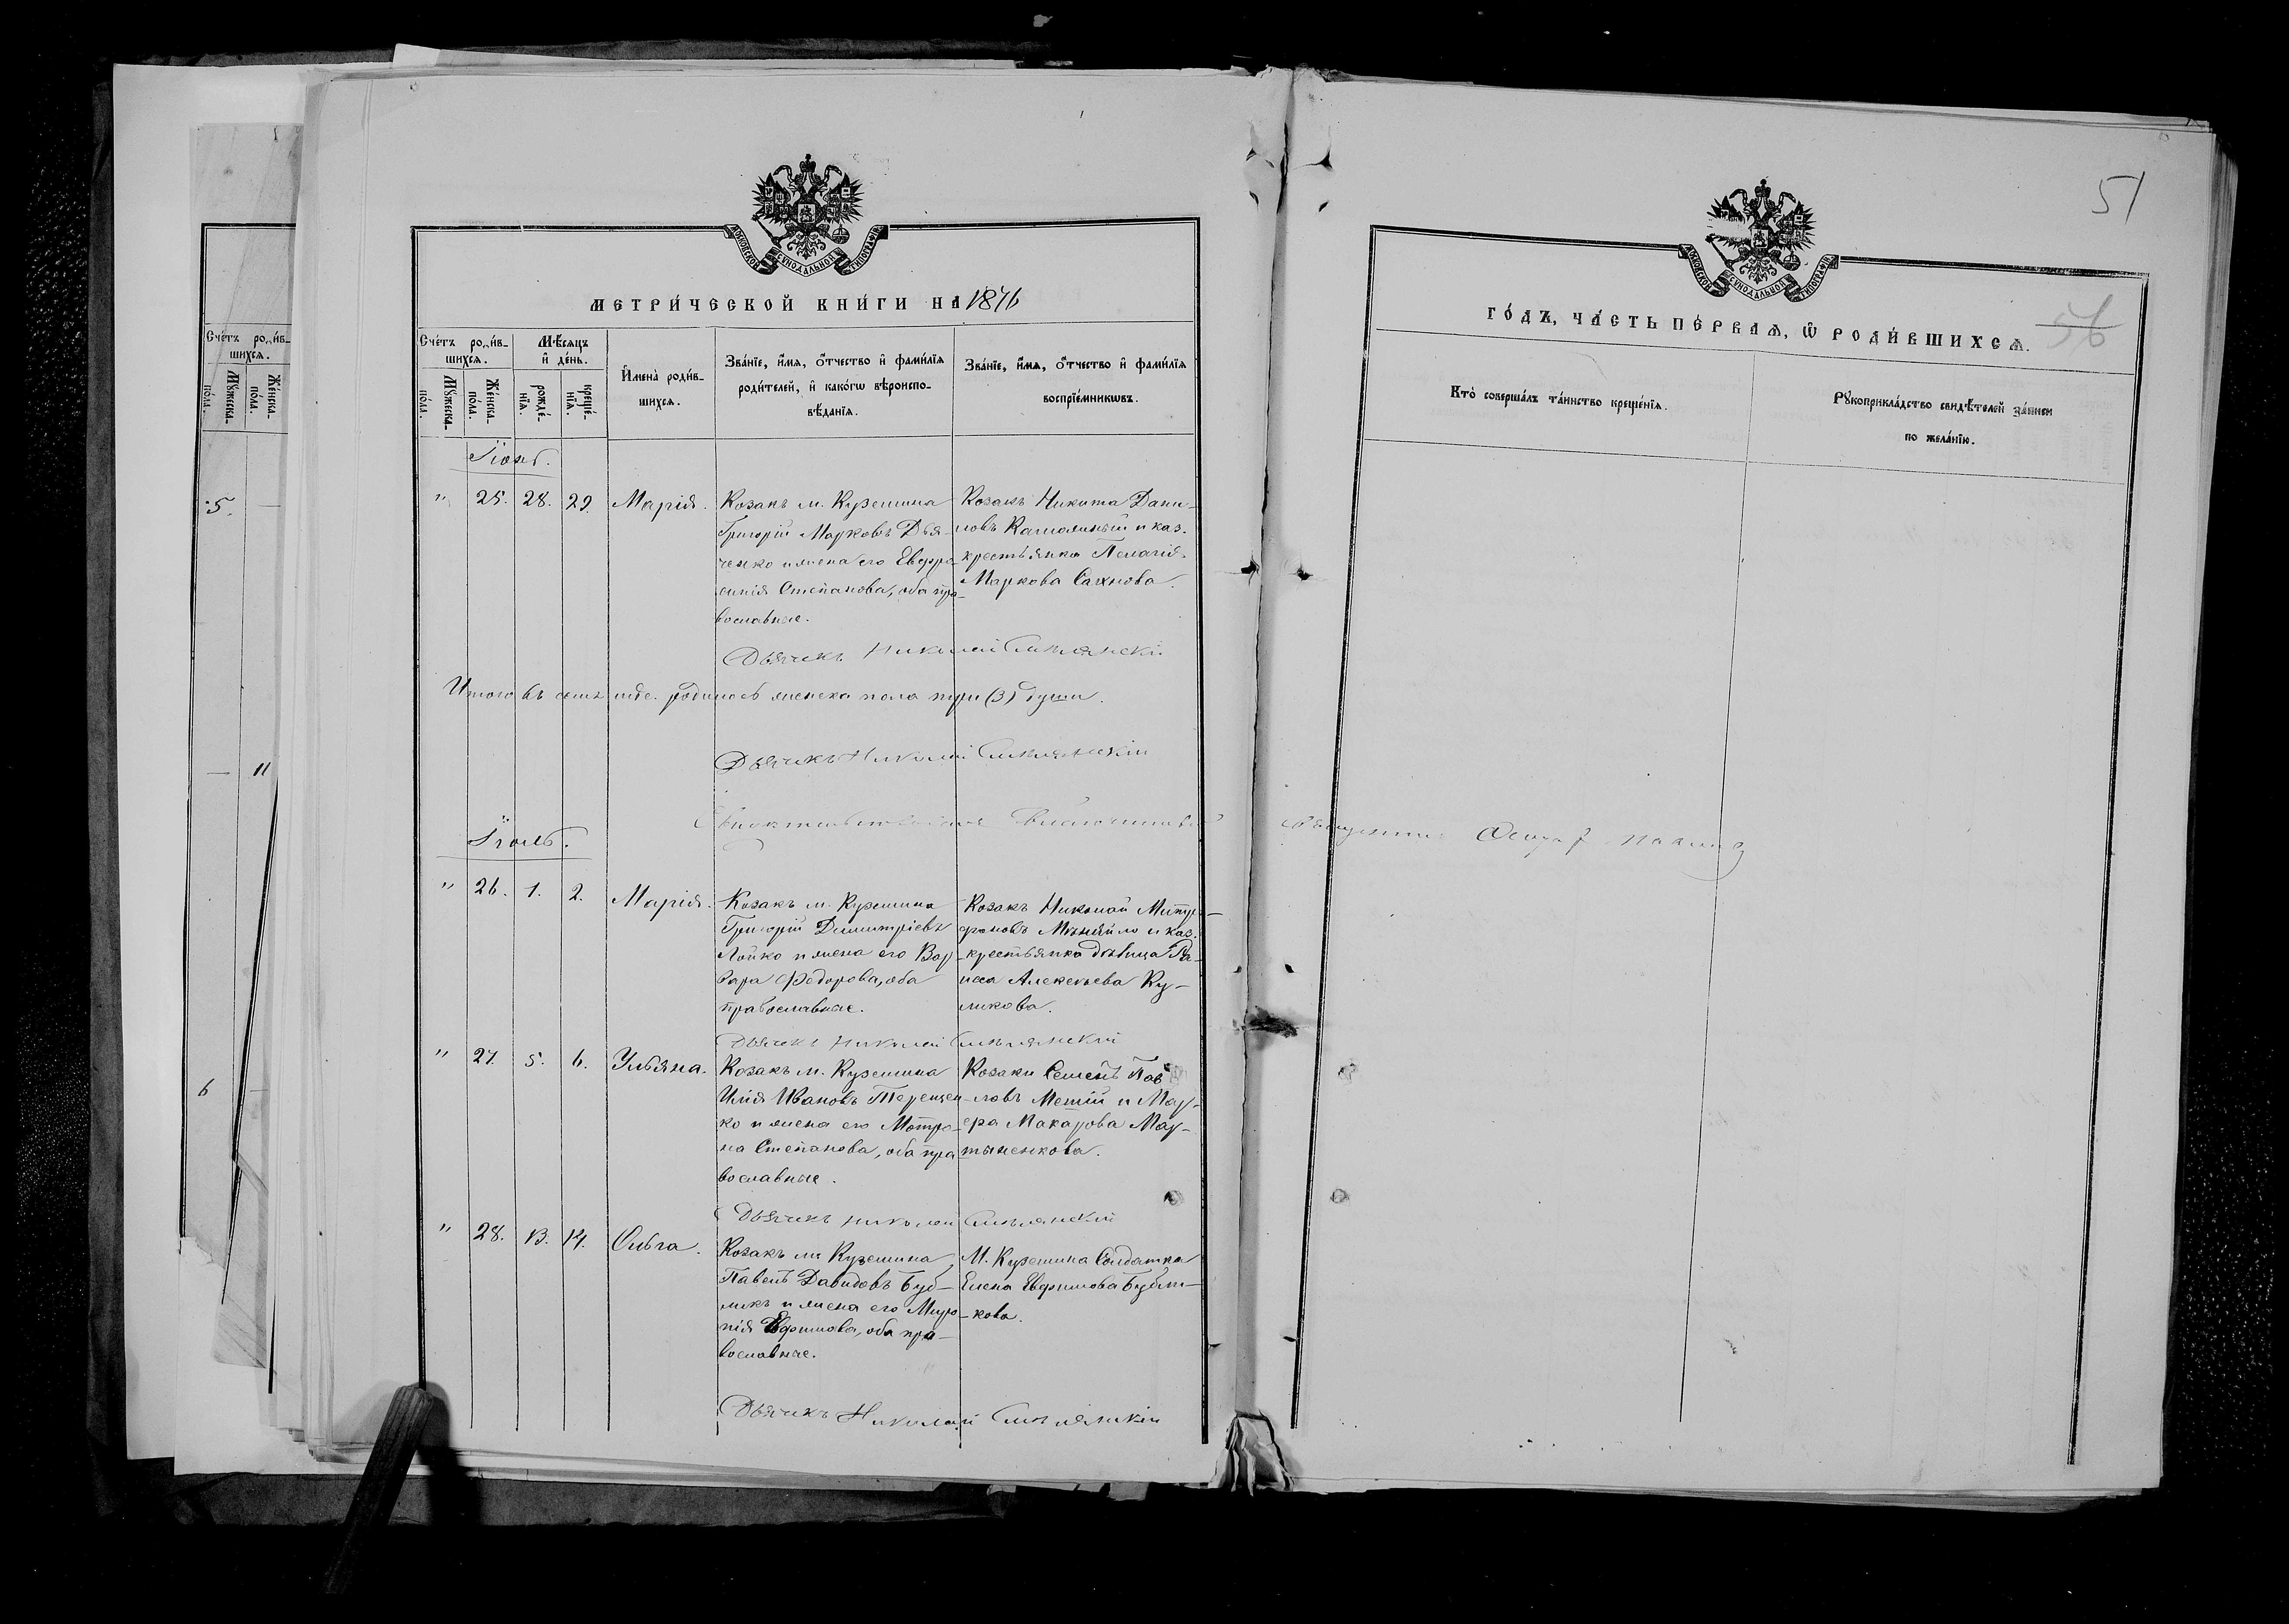 МОСКОВСКОЙ СѴНОДАЛЬНОЙ ТИПОГРАФІИ
МЕТРИ́ЧЕСКОЙ КНИ́ГИ НА 1876
Сче́тъ роди́в-
шихсѧ.
Мѣ́сяцъ
и҆ де́нь.
Мꙋ́жеска-
по́ла.
Же́нска-
по́ла.
рожде́-
нїѧ.
креще́-
нїѧ.
И҆мена̀ роди́в-
шихсѧ.
Зва́нїе, и҆́мѧ, ѻ҆́тчество и҆ фами́лїѧ
роди́телей, и҆ како́гѡ вѣроиспо-
вѣ́данїѧ.
Зва́нїе, и҆́мѧ, ѻ҆́тчество и҆ фами́лїѧ
воспрїе́мникѡвъ.
Іюнь.
" 25. 28. 29. Марія.
Козакъ м. Куземина
Григорій Марковъ Дья-
ченко и жена его Евфро-
синія Степанова, оба пра-
вославные.
Козакъ Никита Дани-
ловъ и каз.
крестьянка Пелагія
Маркова Сахнова.
Дьячекъ Николай Смѣлянскій
Итого въ семъ мѣс. родилось женска пола три (3) души.
Дьячекъ Николай Смѣлянскій
Іюль.
" 26. 1. 2. Марія.
Козакъ м. Куземина
Григорій Димитріевъ
Лойко и жена его Вар-
вара Федорова, оба
православные.
Козакъ Николай Митро-
фановъ и каз.
крестьянка дѣвица Ра-
иса Алексѣева Ку-
ликова.
Дьячекъ Николай Смѣлянскій
" 27. 5. 6. Ульяна.
Козакъ м. Куземина
Илія Ивановъ Терещен-
ко и жена его Матро-
на Степанова, оба пра-
вославные.
Козаки Семенъ Пав-
ловъ и Мар-
Макарова Мар-
тыненкова.
Дьячекъ Николай Смѣлянскій
" 28. 13. 14. Ольга.
Козакъ м. Куземина
Павелъ Давидовъ Буб-
ликъ и жена его Миро-
нія Евфимова, оба пра-
вославные.
М. Куземина Солдатка
Елена Евфимова Бубли-
кова.
Дьячекъ Николай Смѣлянскій
51
56
МОСКОВСКОЙ СѴНОДАЛЬНОЙ ТИПОГРАФІИ
ГО́ДЪ, ЧА́СТЬ ПЕ́РВАѦ, Ѡ҆ РОДИ́ВШИХСѦ.
Кто̀ соверша́лъ та́инство креще́нїѧ.
Рꙋкоприкла́дство свидѣ́телей за́писи
по жела́нїю.
Сче́тъ роди́в-
шихсѧ.
Мꙋ́жеска-
по́ла.
Же́нска-
по́ла.
5.
11
6